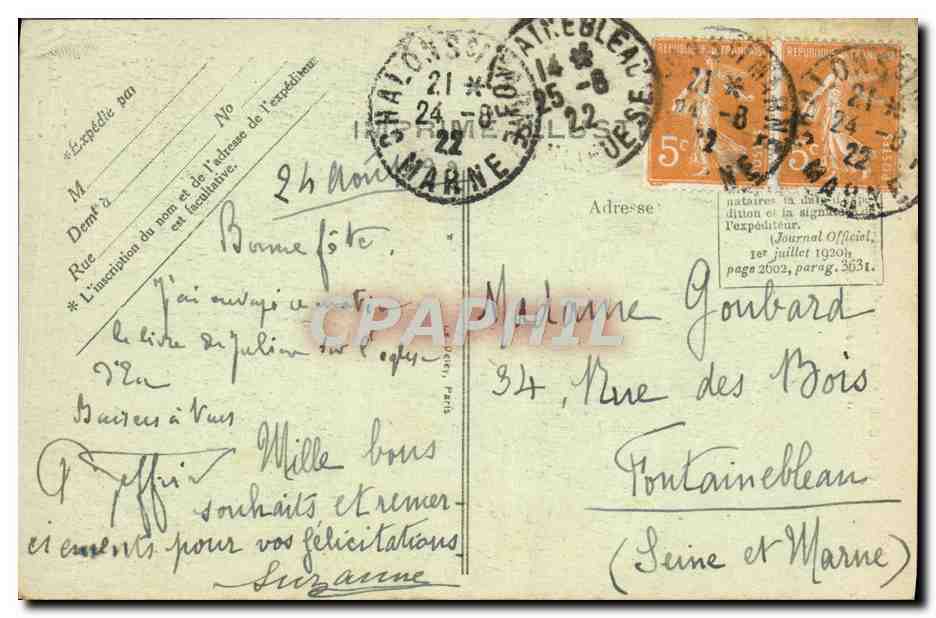 *Expédié par
M
No
Demt à
Rue
* L'inscription du nom et de l'adresse de l'expéditeur
est facultative.
CHALONS S MARNE
21 *
24 - 8
22
MARNE
FONTAINEBLEAU
14 *
25 - 8
22
IMPRIMÉ ILLUS
REPUBLIQUE FRANÇAISE
5c
POSTES
REPUBLIQUE FRANÇAISE
5c
POSTES
21 *
24 - 8
22
MARNE
21 *
24 - 8
22
MARNE
nataires la date d'expé-
dition et la signature de
l'expéditeur.
(Journal Officiel,
1er juillet 1920,
page 2602, parag. 3631.
24 Août 22
Bonne fête,
J'ai envoyé ce matin
le livre de Julien sur l'église
d'Eu
Baisers à Vous
Mille bons
souhaits et remer-
ciements pour vos félicitations
Suzanne
Paris
CPAPHIL
Adresse
Madame Goubard
34, Rue des Bois
Fontainebleau
(Seine et Marne)